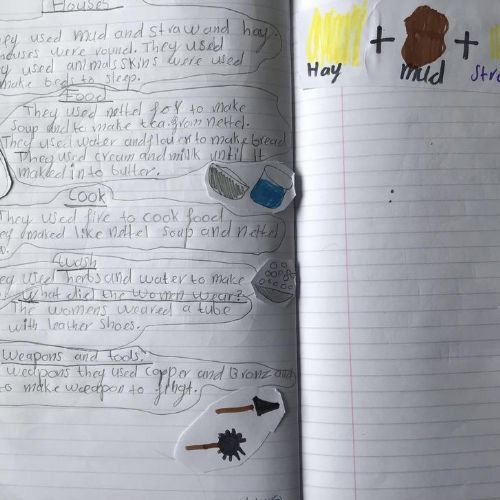 Houses
hey used mud and straw and hay.
houses were round. They used
y used animals skins were used
make beds to sleep.
Food
They used nettel for to make
soup and to make tea from nettel.
They used water and flour to make bread
They used cream and milk until it
maked into butter.
Cook
They used fire to cook food
ey maked like nettel soup and nettel
Wash
ey used herbs and water to make
What died the women wear?
The womens weared a tube
with leather shoes.
Weapons and tools.
weapons they used copper and Bronz
to make weedpon to
Hay + mud + Stra